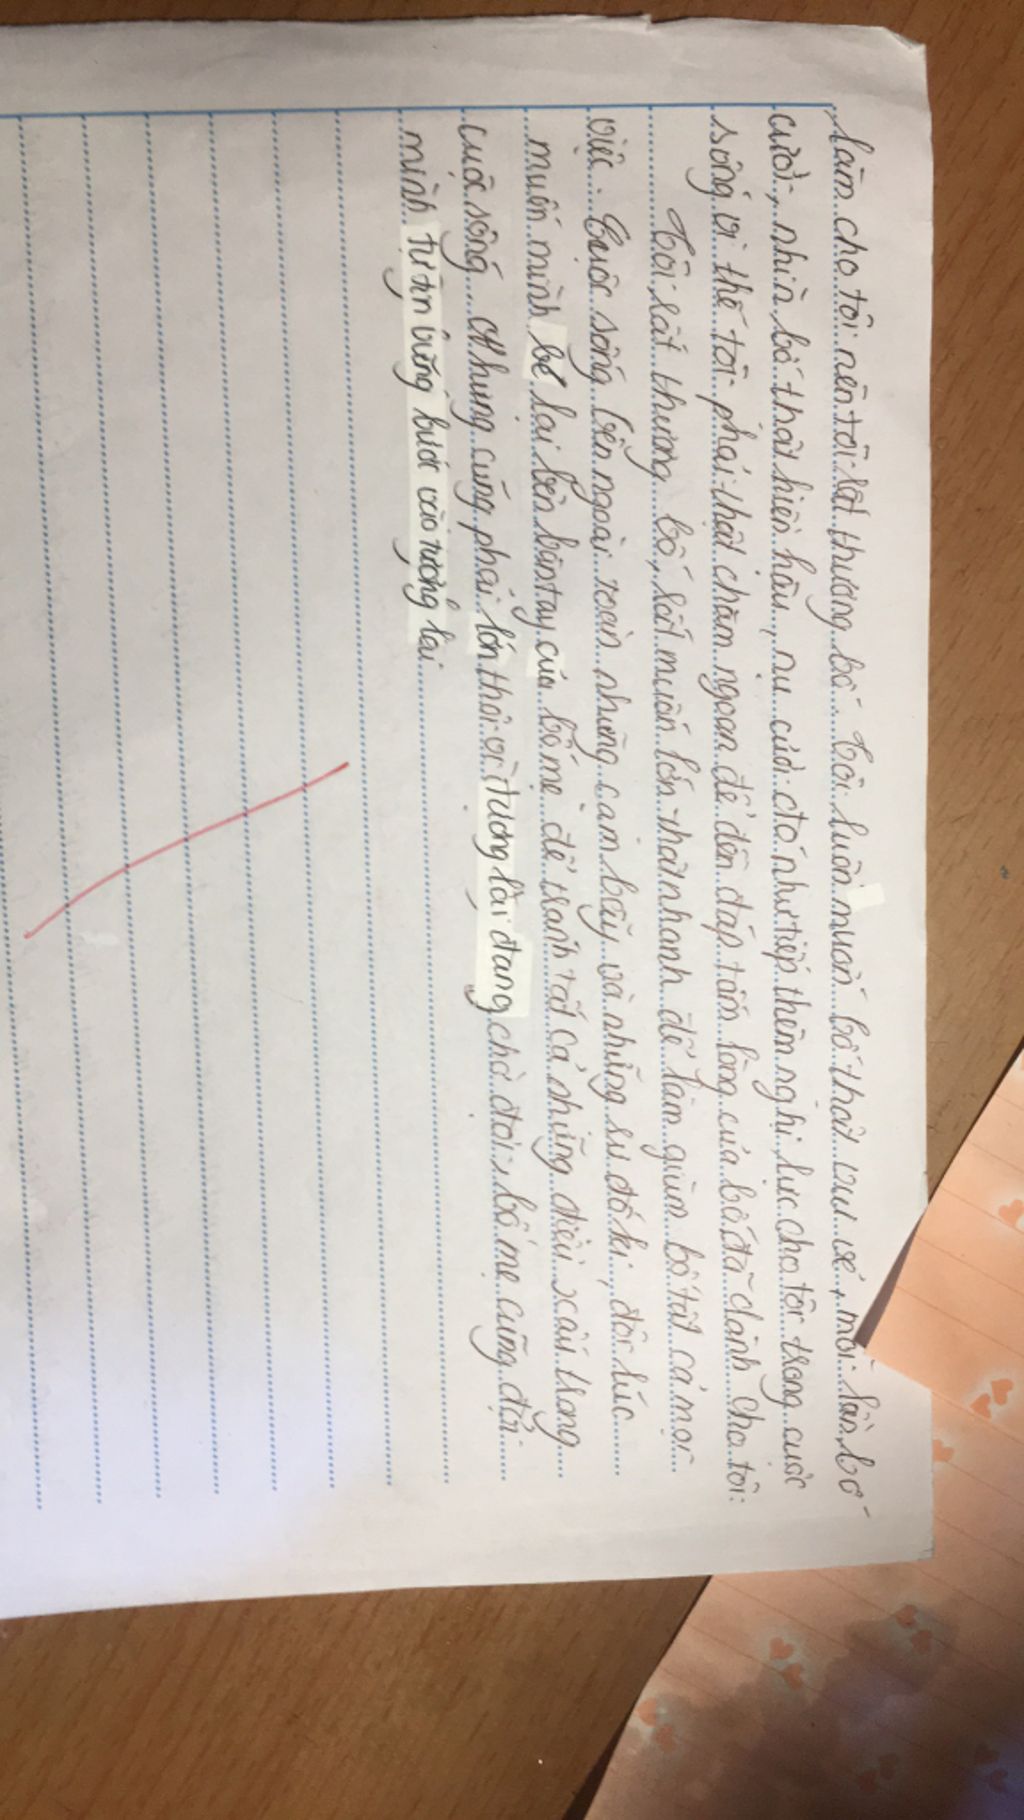 làm cho tôi nên tôi rất thương bố. Tôi luôn muốn bố thật vui vẻ, mỗi lần bố
cười, nhìn bố thật hiền hậu, nụ cười đó như tiếp thêm nghị lực cho tôi trong cuộc
sống vì thế tôi phải thật chăm ngoan để đền đáp tấm lòng của bố đã dành cho tôi.
Tôi rất thương bố, rất muốn lớn thật nhanh để làm giùm bố tất cả mọi
việc. Cuộc sống bên ngoài toàn những cạm bẫy và những sự đố kị, đôi lúc
muốn mình bé lại bên bàn tay của bố mẹ để tránh tất cả những điều xấu trong
cuộc sống. Nhưng cũng phải lớn thôi vì tương lai đang chờ đợi, bố mẹ cũng đợi
mình tự tin vững bước vào tương lai